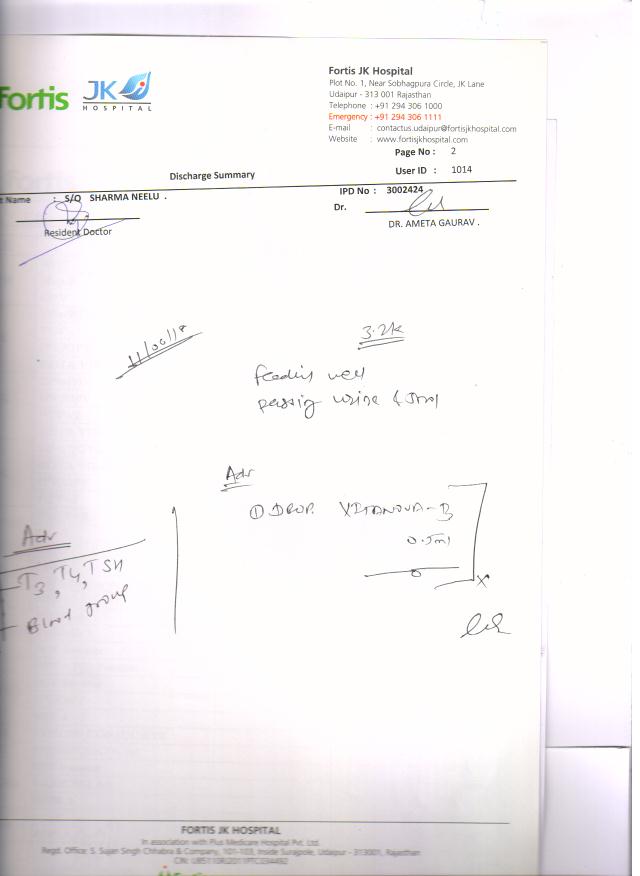 Fortis JK HOSPITAL
Fortis JK Hospital
Plot No. 1, Near Sobhagpura Circle, JK Lane
Udaipur - 313 001 Rajasthan
Telephone : +91 294 306 1000
Emergency : +91 294 306 1111
E-mail : contactus.udaipur@fortisjkhospital.com
Website : www.fortisjkhospital.com
Page No : 2
Discharge Summary
User ID : 1014
t Name : S/O SHARMA NEELU .
IPD No : 3002424
Dr.
Resident Doctor
DR. AMETA GAURAV .
3.2k
feeding well
passing urine &
Adv
① DROP.
0.5ml
Adv
T3, T4, TSH
Blood group
FORTIS JK HOSPITAL
In association with Plus Medicare Hospital Pvt. Ltd.
Regd. Office: S. Sujan Singh Chhabra & Company, 101-103, Inside Surajpole, Udaipur - 313001, Rajasthan